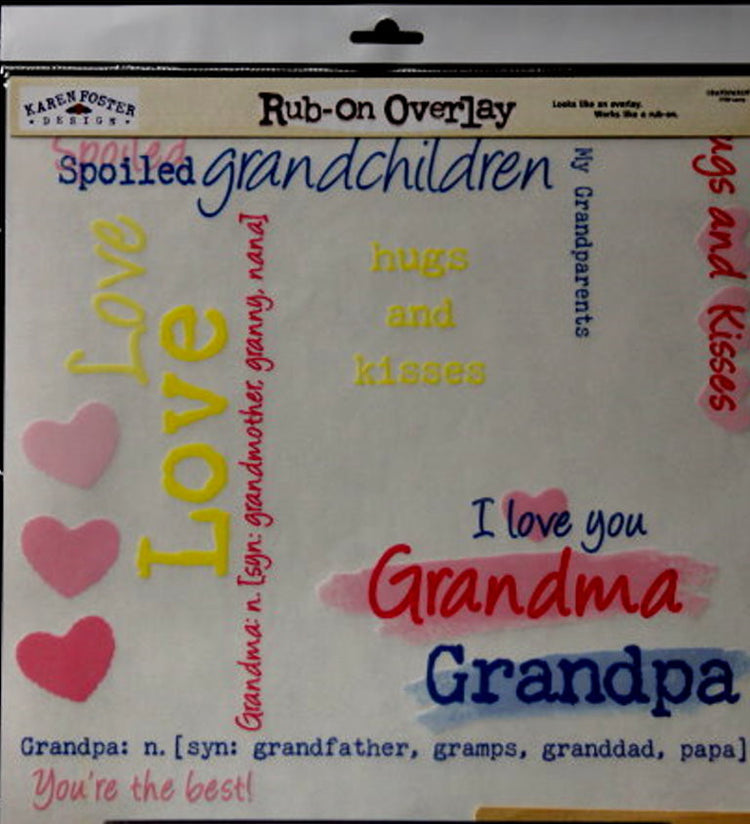 KAREN FOSTER
DESIGN
Rub-On Overlay
Looks like an overlay.
Works like a rub-on.
Spoiled
Spoiled grandchildren
My Grandparents
ugs and Kisses
Love
Love
Grandma: n. [syn: grandmother, granny, nana]
hugs
and
kisses
I love you
Grandma
Grandpa
Grandpa: n. [syn: grandfather, gramps, granddad, papa]
You're the best!